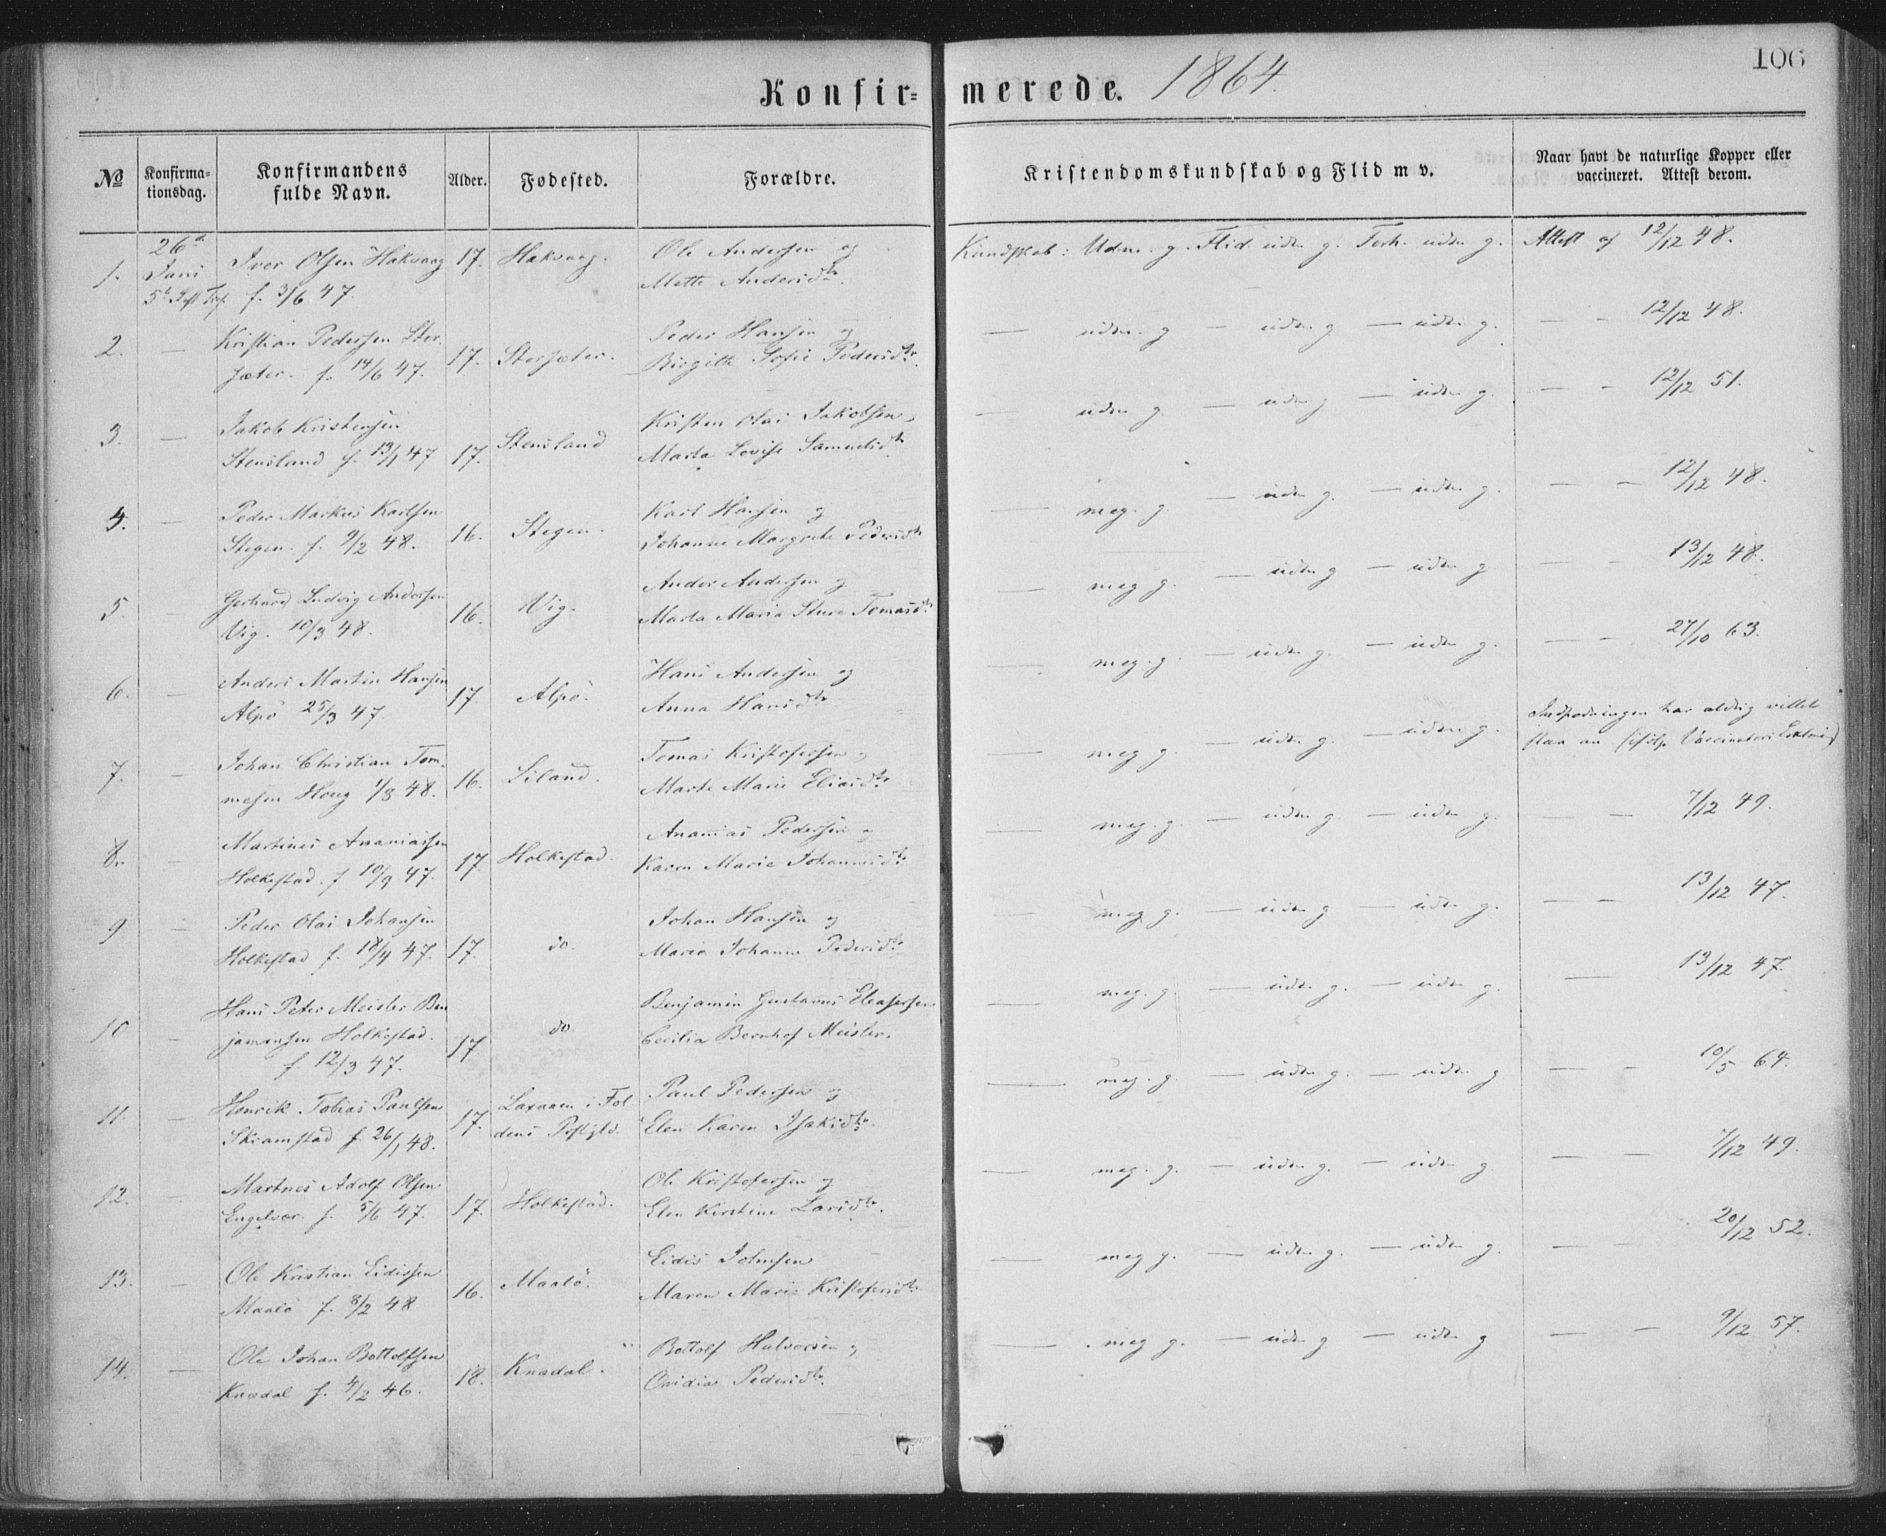 106
Konfirmerede. 1864.
№
Konfirmationsdag.
Konfirmandens fulde Navn.
Alder.
Fødested.
Forældre.
Kristendomskundskab og Flid m v.
Naar havt de naturlige Kopper eller vaccineret. Attest derom.
1. 26de Juni 5te S. eft Tref. Iver Olsen Hakvaag f. 3/6 47. 17. Hakvaag. Ole Andersen og Mette Andersdtr. Kundskab: Udm. g. Flid uden g. Forh. uden g. Attest af 12/12 48.
2. — Kristian Pedersen Storsæter. f. 14/6 47. 17. Storsæter. Peder Hansen og Birgitte Sofie Pedersdtr. — udm. g — uden g — uden g. — — 12/12 48.
3. — Jakob Kristensen Stensland f. 13/1 47 17. Stensland Kristen Olai Jakobsen, Marta Lovise Samuelsdtr. — uden g. — uden g — uden g. — — 12/12 51.
4. — Peder Markus Karlsen Stegen. f. 9/2 48. 16. Stegen. Karl Hansen og Johanne Margrete Pedersdtr. — meg. g. — uden g. — uden g. — — 12/12 48.
5. — Gerhard Ludvig Andersen Vig. 10/3 48. 16. Vig. Anders Andersen og Marta Maria Sture Tomasdtr. — meg g. — uden g — uden g — — 13/12 48.
6. — Anders Martin Hansen Alpø 25/3 47. 17. Alpø. Hans Andersen og Anna Hansdtr. — meg. g. — uden g. — uden g. — — 27/10 63.
7. — Johan Christian Tommesen Houg 1/8 48. 16. Siland. Tomas Kristofersen og Marte Marie Eliasdtr. — meg g. — uden g. — uden g. Indpodningen har aldrig villet slaa an (ifølge Vaccinateri
8. — Martines Ananiassen Holkestad. f 10/9 47. 17. Holkestad. Ananias Pedersen og Karen Marie Johannesdtr. — meg. g. — uden g — uden g. — — 7/12 49.
9 — Peder Olai Johansen Holkestad f. 18/4 47. 17. do. Johan Hansen og Maria Johanna Pedersdtr. — meg g. — uden g — uden g. — — 13/12 47.
10 — Hans Peter Meisler Benjaminsen Holkestad. f 12/3 47. 17 do Benjamin Gustavus Eleasersen Cecilia Bernhof Meisler. — meg. g. — uden g. — uden g. — 13/12 47.
11. — Henrik Tobias Paulsen Skramstad f. 26/1 48. 17. Laxaaen i Foldens Prstgld. Paul Pedersen og Elen Karen Isaksdtr. — meg. g. — uden g. — uden g — — 10/5 64.
12. — Martnes Adolf Olsen Engelvær. f. 5/6 47. 17. Holkestad. Ole Kristofersen og Elen Kirstine Larsdtr. — meg. g. — uden g. — uden g — — 7/12 49.
13. — Ole Kristian Eidissen Maalø f. 8/2 48 16. Maalø. Eidis Johnsen Maren Marie Kristofersdtr. — meg g. — uden g. — uden g. — — 20/12 52.
14. — Ole Johan Bottolfsen Knædal f. 4/2 46. 18. Knædal. Bottolf Halvorsen og Ovidia Pedersdtr. — meg g. — uden g — uden g — — 9/12 57.